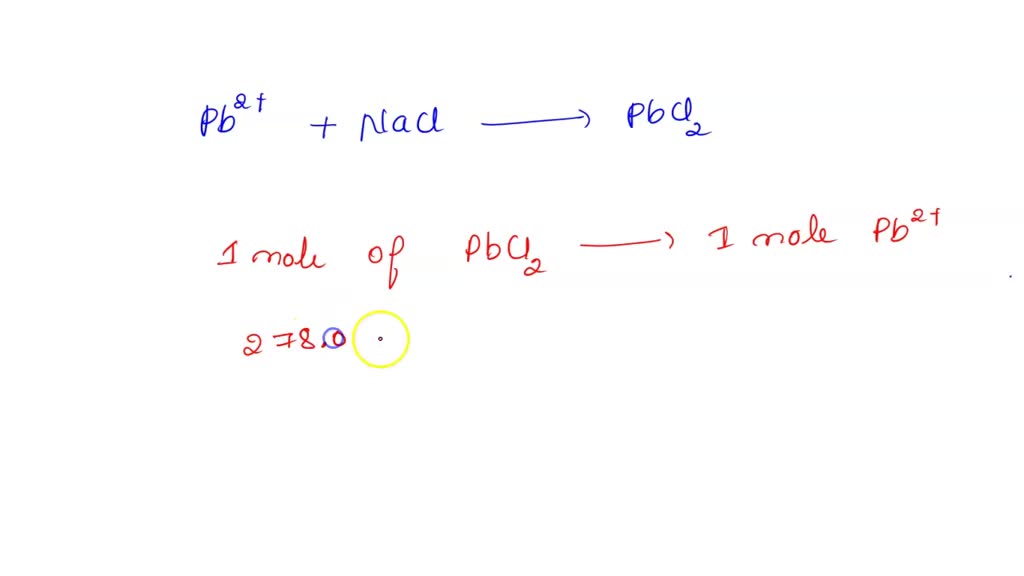 Pb²⁺ + NaCl ⟶ PbCl₂
1 mole of PbCl₂ ⟶ 1 mole Pb²⁺
278.0